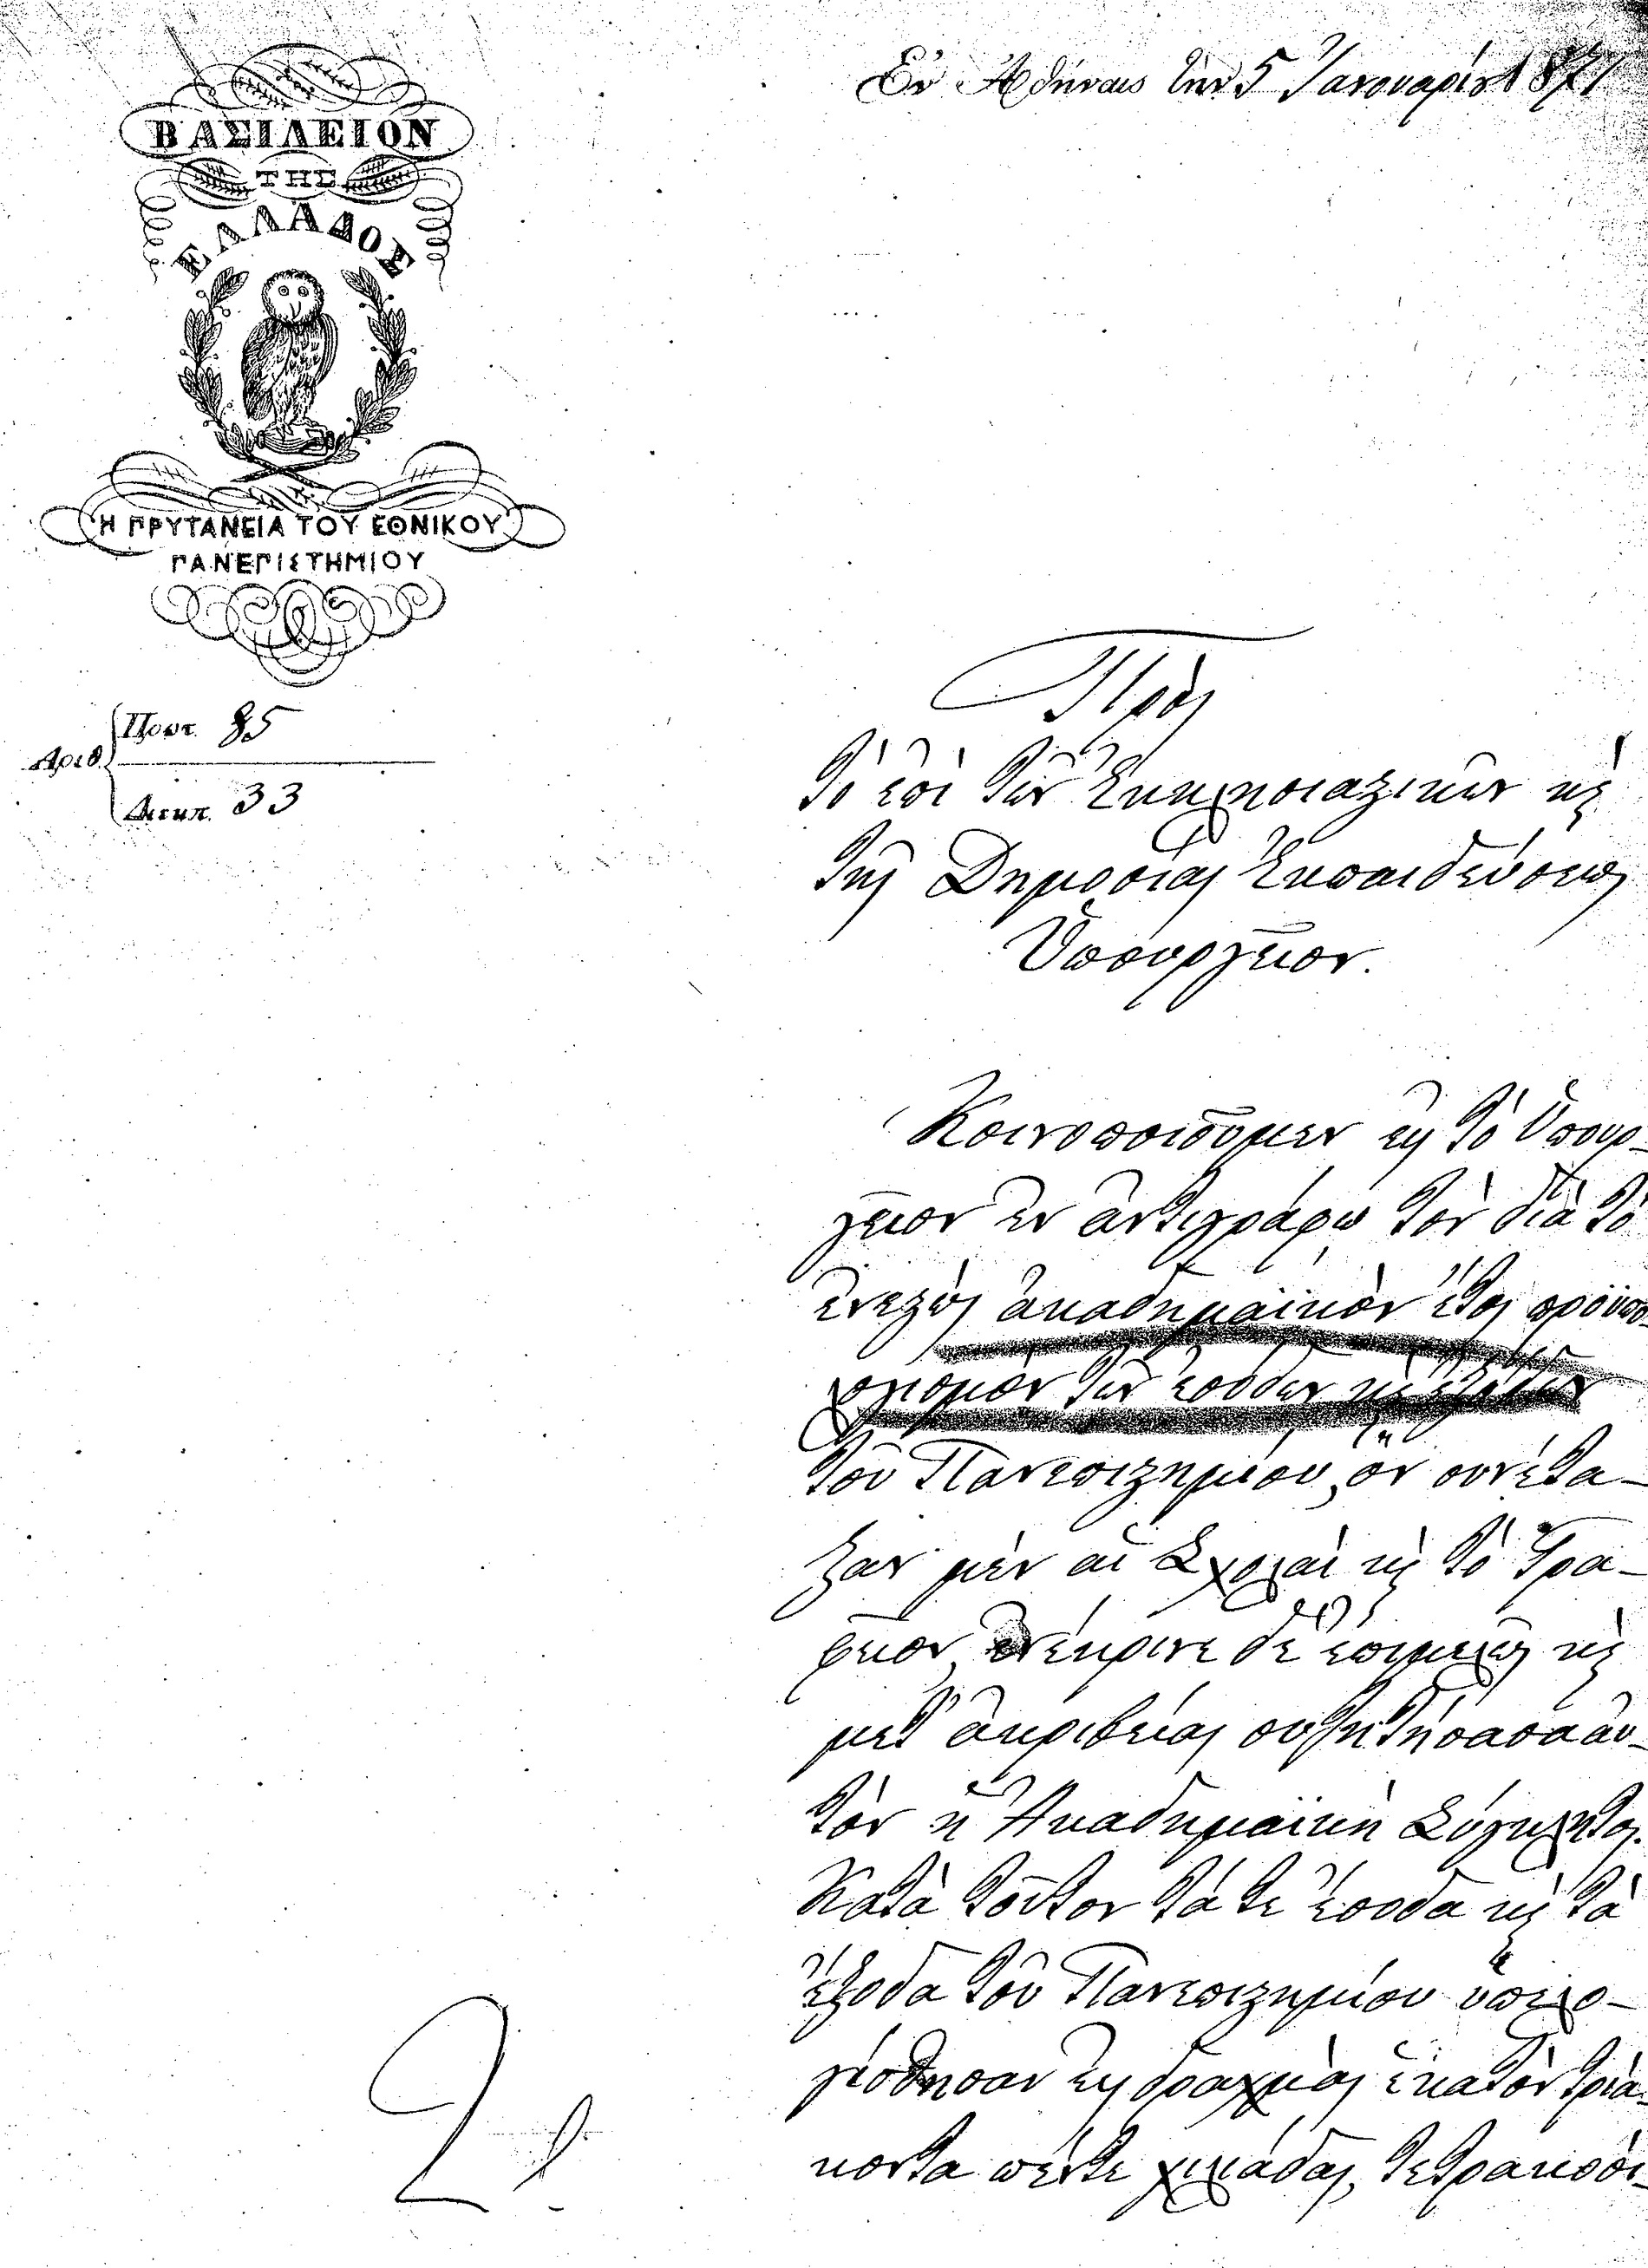 Ἐν Ἀθήναις τὴν 5 Ἰανουαρίου 1871
ΒΑΣΙΛΕΙΟΝ
ΤΗΣ
ΕΛΛΑΔΟΣ
Η ΠΡΥΤΑΝΕΙΑ ΤΟΥ ΕΘΝΙΚΟΥ
ΠΑΝΕΠΙΣΤΗΜΙΟΥ
Ἀριθ.
Πρωτ. 85
Διεκπ. 33
Πρὸς
τὸ ἐπὶ τῶν Ἐκκλησιαστικῶν κ̀
τῆς Δημοσίας Ἐκπαιδεύσεως
Ὑπουργεῖον.
Κοινοποιοῦμεν εἰς τὸ Ὑπουρ-
γεῖον ἐν ἀντιγράφῳ τὸν διὰ τὸ
ἐνεστὼς ἀκαδημαϊκὸν ἔτος προϋπο-
λογισμὸν τῶν ἐσόδων κ̀ ἐξόδων
τοῦ Πανεπιστημίου, ὃν συνέτα-
ξαν μὲν αἱ Σχολαὶ κ̀ τὸ Γρα-
φεῖον, ἐνέκρινε δὲ ἐπιμελῶς κ̀
μετ' ἀκριβείας συζητήσασα αὐ-
τὸν ἡ Ἀκαδημαϊκὴ Σύγκλητος.
Κατὰ τοῦτον τά τε ἔσοδα κ̀ τὰ
ἔξοδα τοῦ Πανεπιστημίου ὑπελο-
γίσθησαν εἰς δραχμὰς ἑκατὸν τριά-
κοντα πέντε χιλιάδας, τετρακοσί-
2